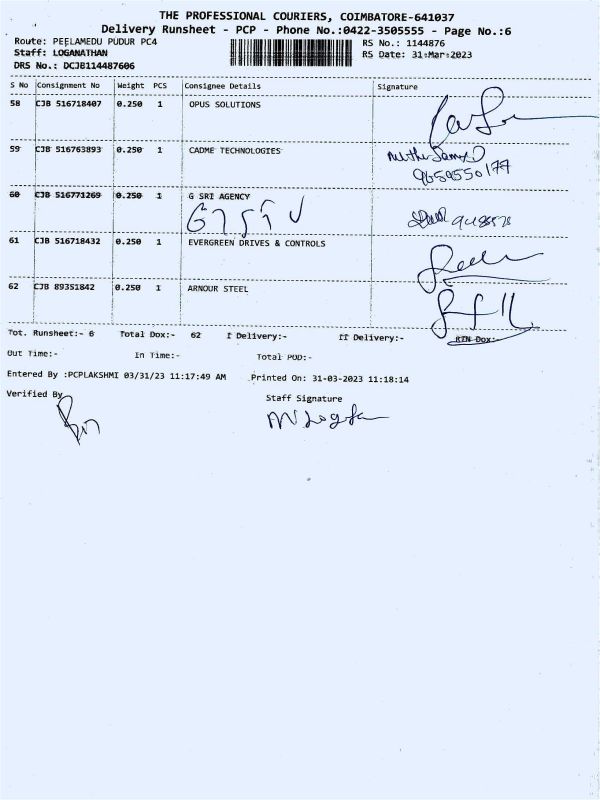 THE PROFESSIONAL COURIERS, COIMBATORE-641037
Delivery Runsheet - PCP - Phone No.:0422-3505555 - Page No.:6
Route: PEELAMEDU PUDUR PC4 RS No.: 1144876
Staff: LOGANATHAN RS Date: 31-Mar-2023
DRS No.: DCJB114487606
S No Consignment No Weight PCS Consignee Details Signature
58 CJB 516718407 0.250 1 OPUS SOLUTIONS
59 CJB 516763893 0.250 1 CADME TECHNOLOGIES
9659550177
60 CJB 516771269 0.250 1 G SRI AGENCY
61 CJB 516718432 0.250 1 EVERGREEN DRIVES & CONTROLS
62 CJB 89351842 0.250 1 ARNOUR STEEL
Tot. Runsheet:- 6 Total Dox:- 62 I Delivery:- II Delivery:- RTN Dox:-
Out Time:- In Time:- Total POD:-
Entered By :PCPLAKSHMI 03/31/23 11:17:49 AM Printed On: 31-03-2023 11:18:14
Verified By Staff Signature